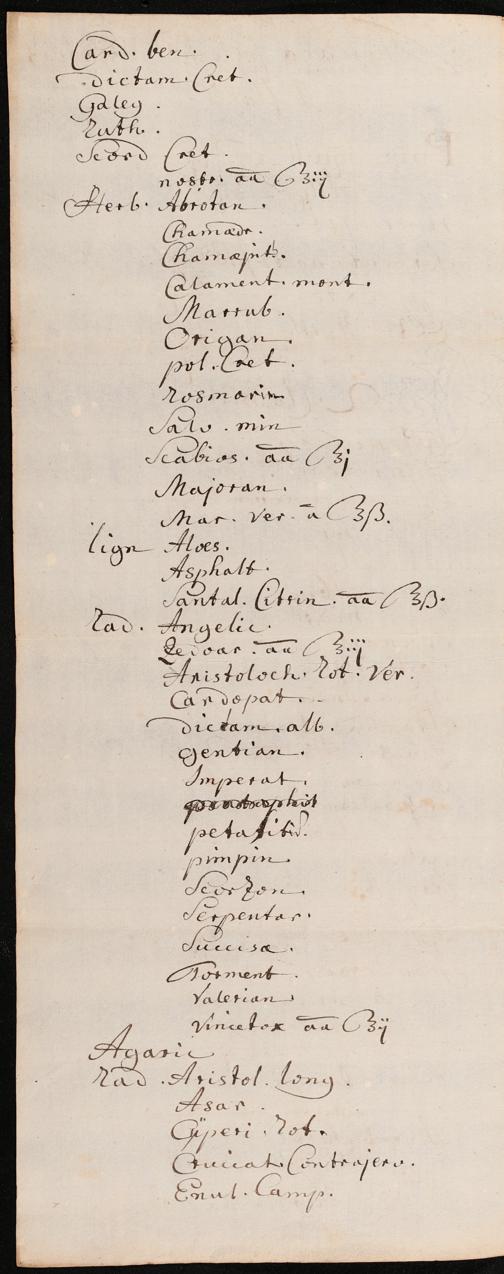 Card. ben.
Dictam. Cret.
Galeg.
Ruth.
Scord Cret.
nostr. aa ℥iij
Herb. Abrotan.
Chamædr.
Chamæpit.
Calament. mont.
Marrub.
Origan.
pol. Cret.
Rosmarin
Salv. min
Scabios. aa ℥j
Majoran.
Mar. ver. a ℥ß.
lign Aloes.
Asphalt.
Santal. Citrin. aa ℥ß.
Rad. Angelic.
Zedoar. aa ℥iij
Aristoloch. Rot. Ver.
Cardopat.
dictam. alb.
gentian.
Imperat.
petasitid.
pimpin.
Scorzon.
Serpentar.
Succisæ.
Torment.
Valerian
Vincetox aa ℥ij
Agaric
Rad. Aristol. long.
Asar.
Cÿperi. Rot.
Cruciat. Contrajerv.
Enul. Camp.